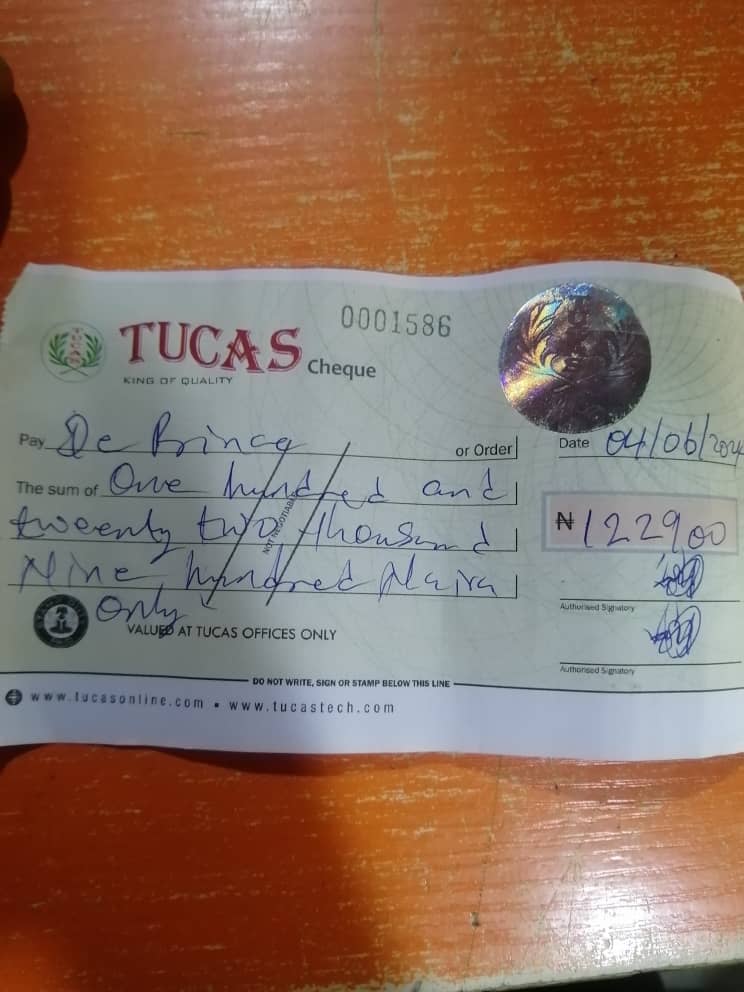 0001586
TUCAS Cheque
KING OF QUALITY
Pay De Prince or Order
Date 04/06/202
The sum of One hundred and
twenty two thousand
₦ 122900
Nine hundred Naira
Only
NOT NEGOTIABLE
Authorised Signatory
VALUED AT TUCAS OFFICES ONLY
Authorised Signatory
DO NOT WRITE, SIGN OR STAMP BELOW THIS LINE
www.tucasonline.com • www.tucastech.com